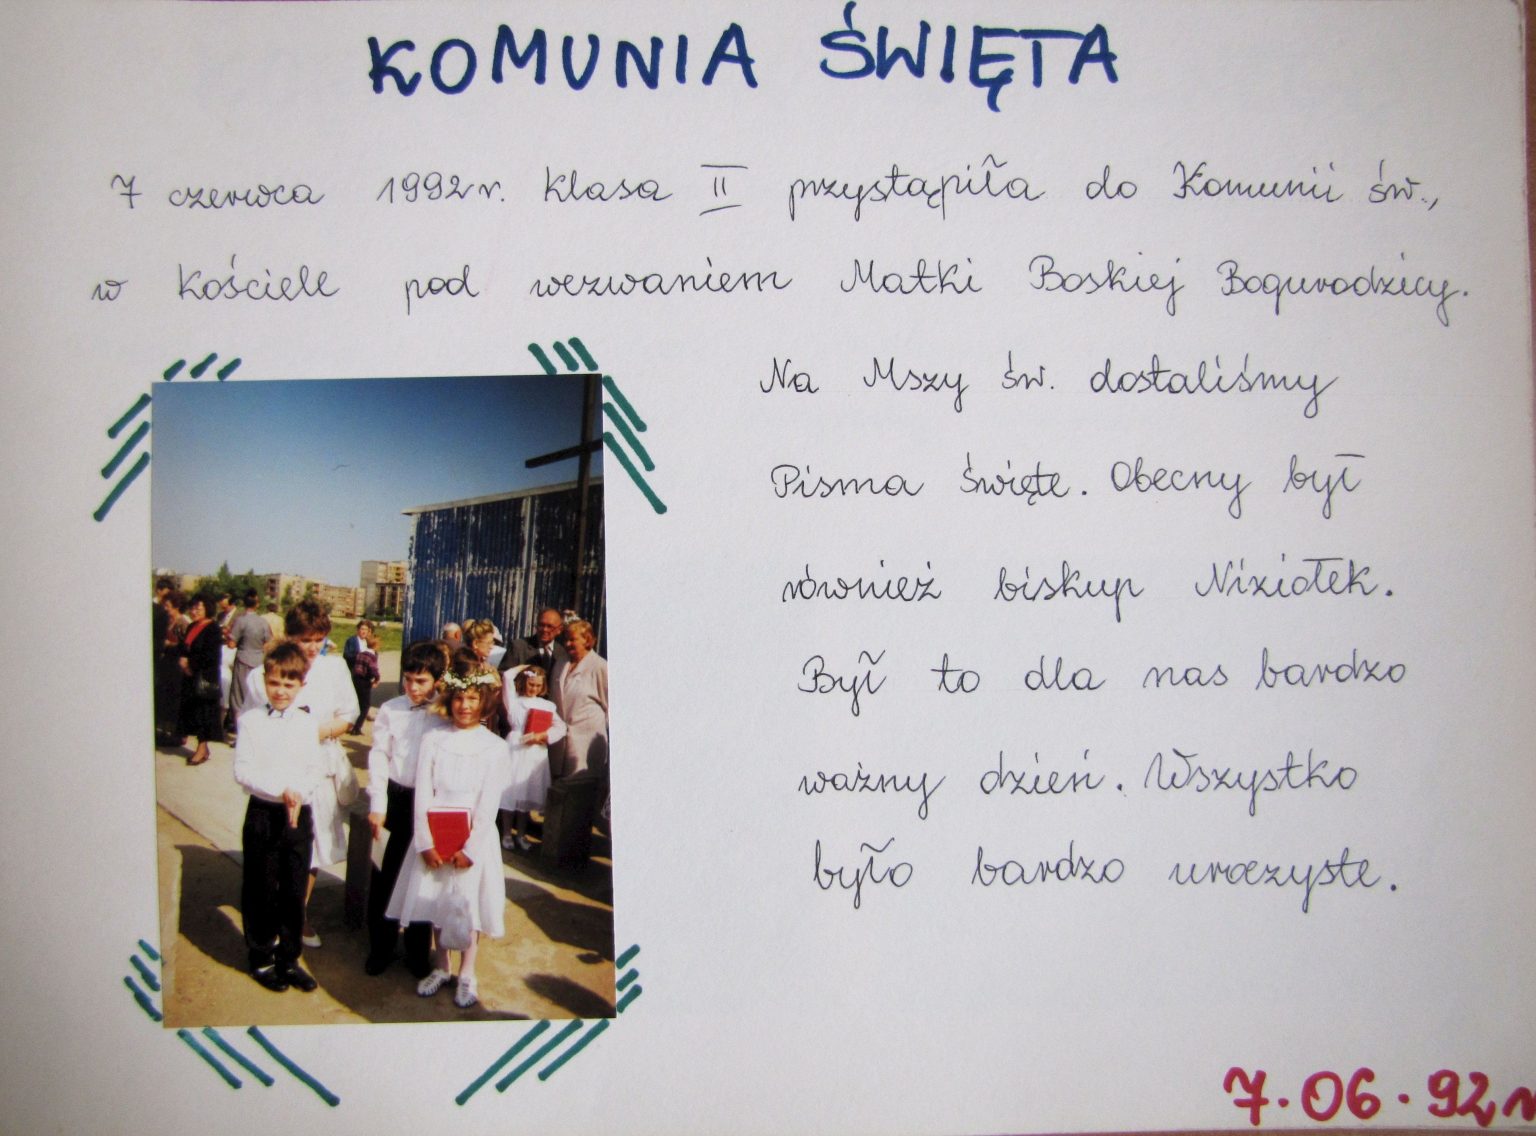 KOMUNIA ŚWIĘTA
7 czerwca 1992 r. klasa II przystąpiła do Komunii św.,
w kościele pod wezwaniem Matki Boskiej Bogurodzicy.
Na Mszy św. dostaliśmy
Pisma święte. Obecny był
również biskup Niziołek.
Był to dla nas bardzo
ważny dzień. Wszystko
było bardzo uroczyste.
7.06.92r